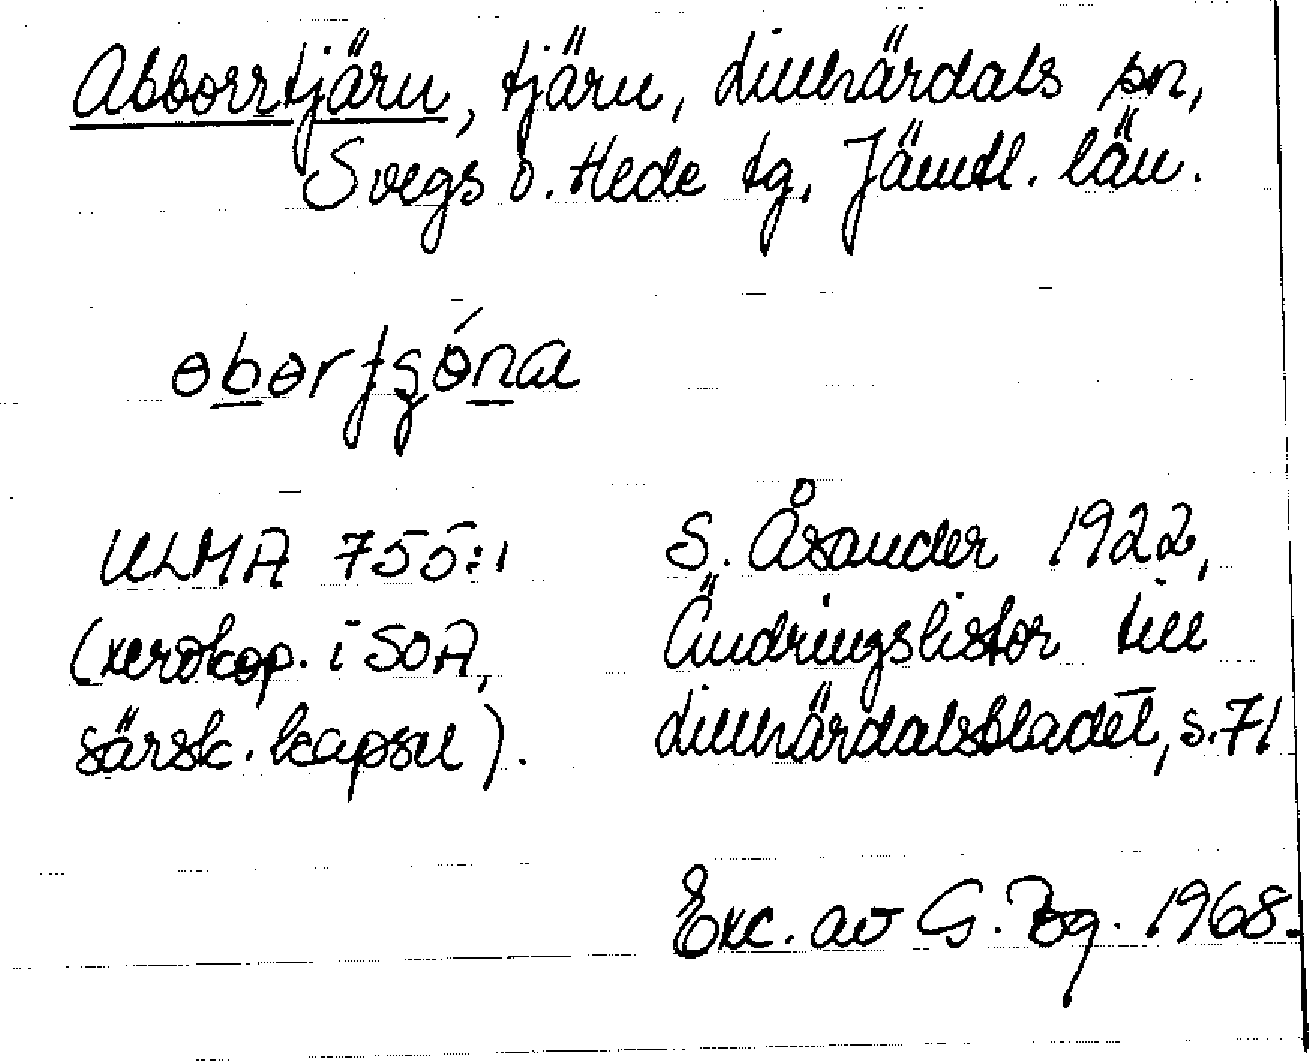 Abborrtjärn, tjärn, Lillhärdals sn,
Svegs o. Hede tg, Jämtl. län.
ULMA 755:1
(xerokop. i SOA,
särsk. kapsel).
S. Åsander 1922,
Ändringslistor till
Lillhärdalsbladet, s. 71
Exc. av G. Bg. 1968.